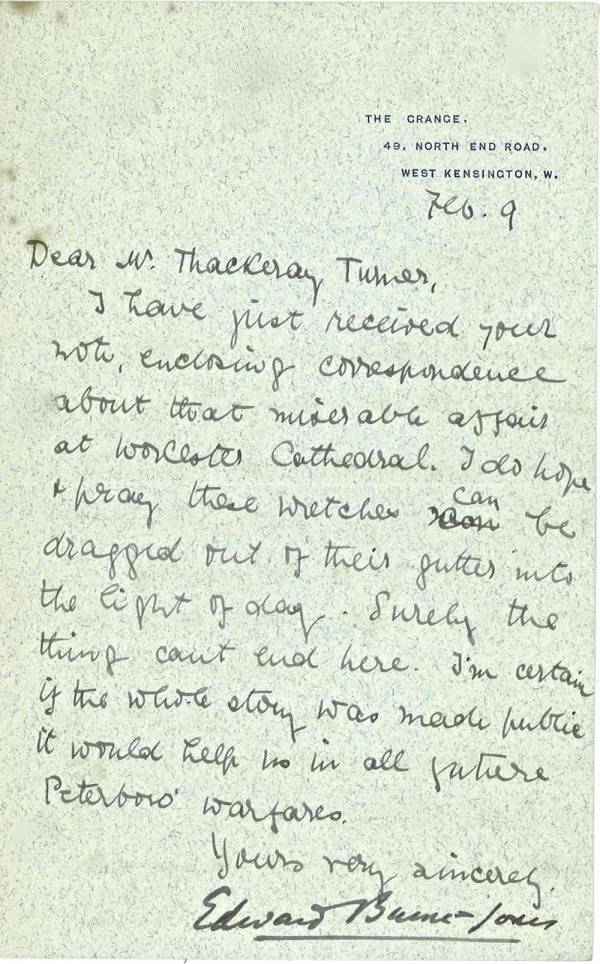 THE GRANGE.
49, NORTH END ROAD,
WEST KENSINGTON, W.
Feb. 9
Dear Mr. Thackeray Turner,
I have just received your
note, enclosing correspondence
about that miserable affair
at Worcester Cathedral. I do hope
& pray these wretches can be
dragged out of their gutter into
the light of day. Surely the
thing cant end here. I'm certain
if the whole story was made public
it would help us in all future
Peterboro' warfares.
Yours very sincerely.
Edward Burne-Jones